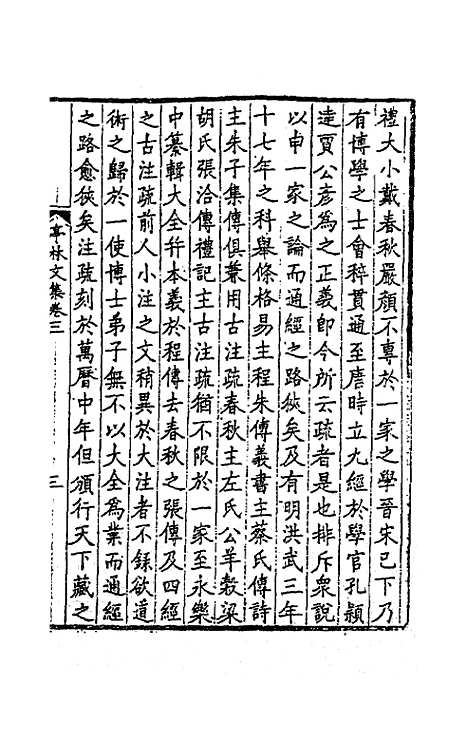 禮大小戴春秋嚴顏不專於一家之學晉宋已下乃
有博學之士會稡貫通至唐時立九經於學官孔穎
達賈公彥為之正義即今所云疏者是也排斥衆說
以申一家之論而通經之路狹矣及有明洪武三年
十七年之科舉條格易主程朱傳義書主蔡氏傳詩
主朱子集傳俱兼用古注疏春秋主左氏公羊穀梁
胡氏張洽傳禮記主古注疏猶不限於一家至永樂
中纂輯大全幷本義於程傳去春秋之張傳及四經
之古注疏前人小注之文稍異於大注者不錄欲道
術之歸於一使博士弟子無不以大全為業而通經
之路愈狹矣注疏刻於萬曆中年但頒行天下藏之
亭林文集卷三
三